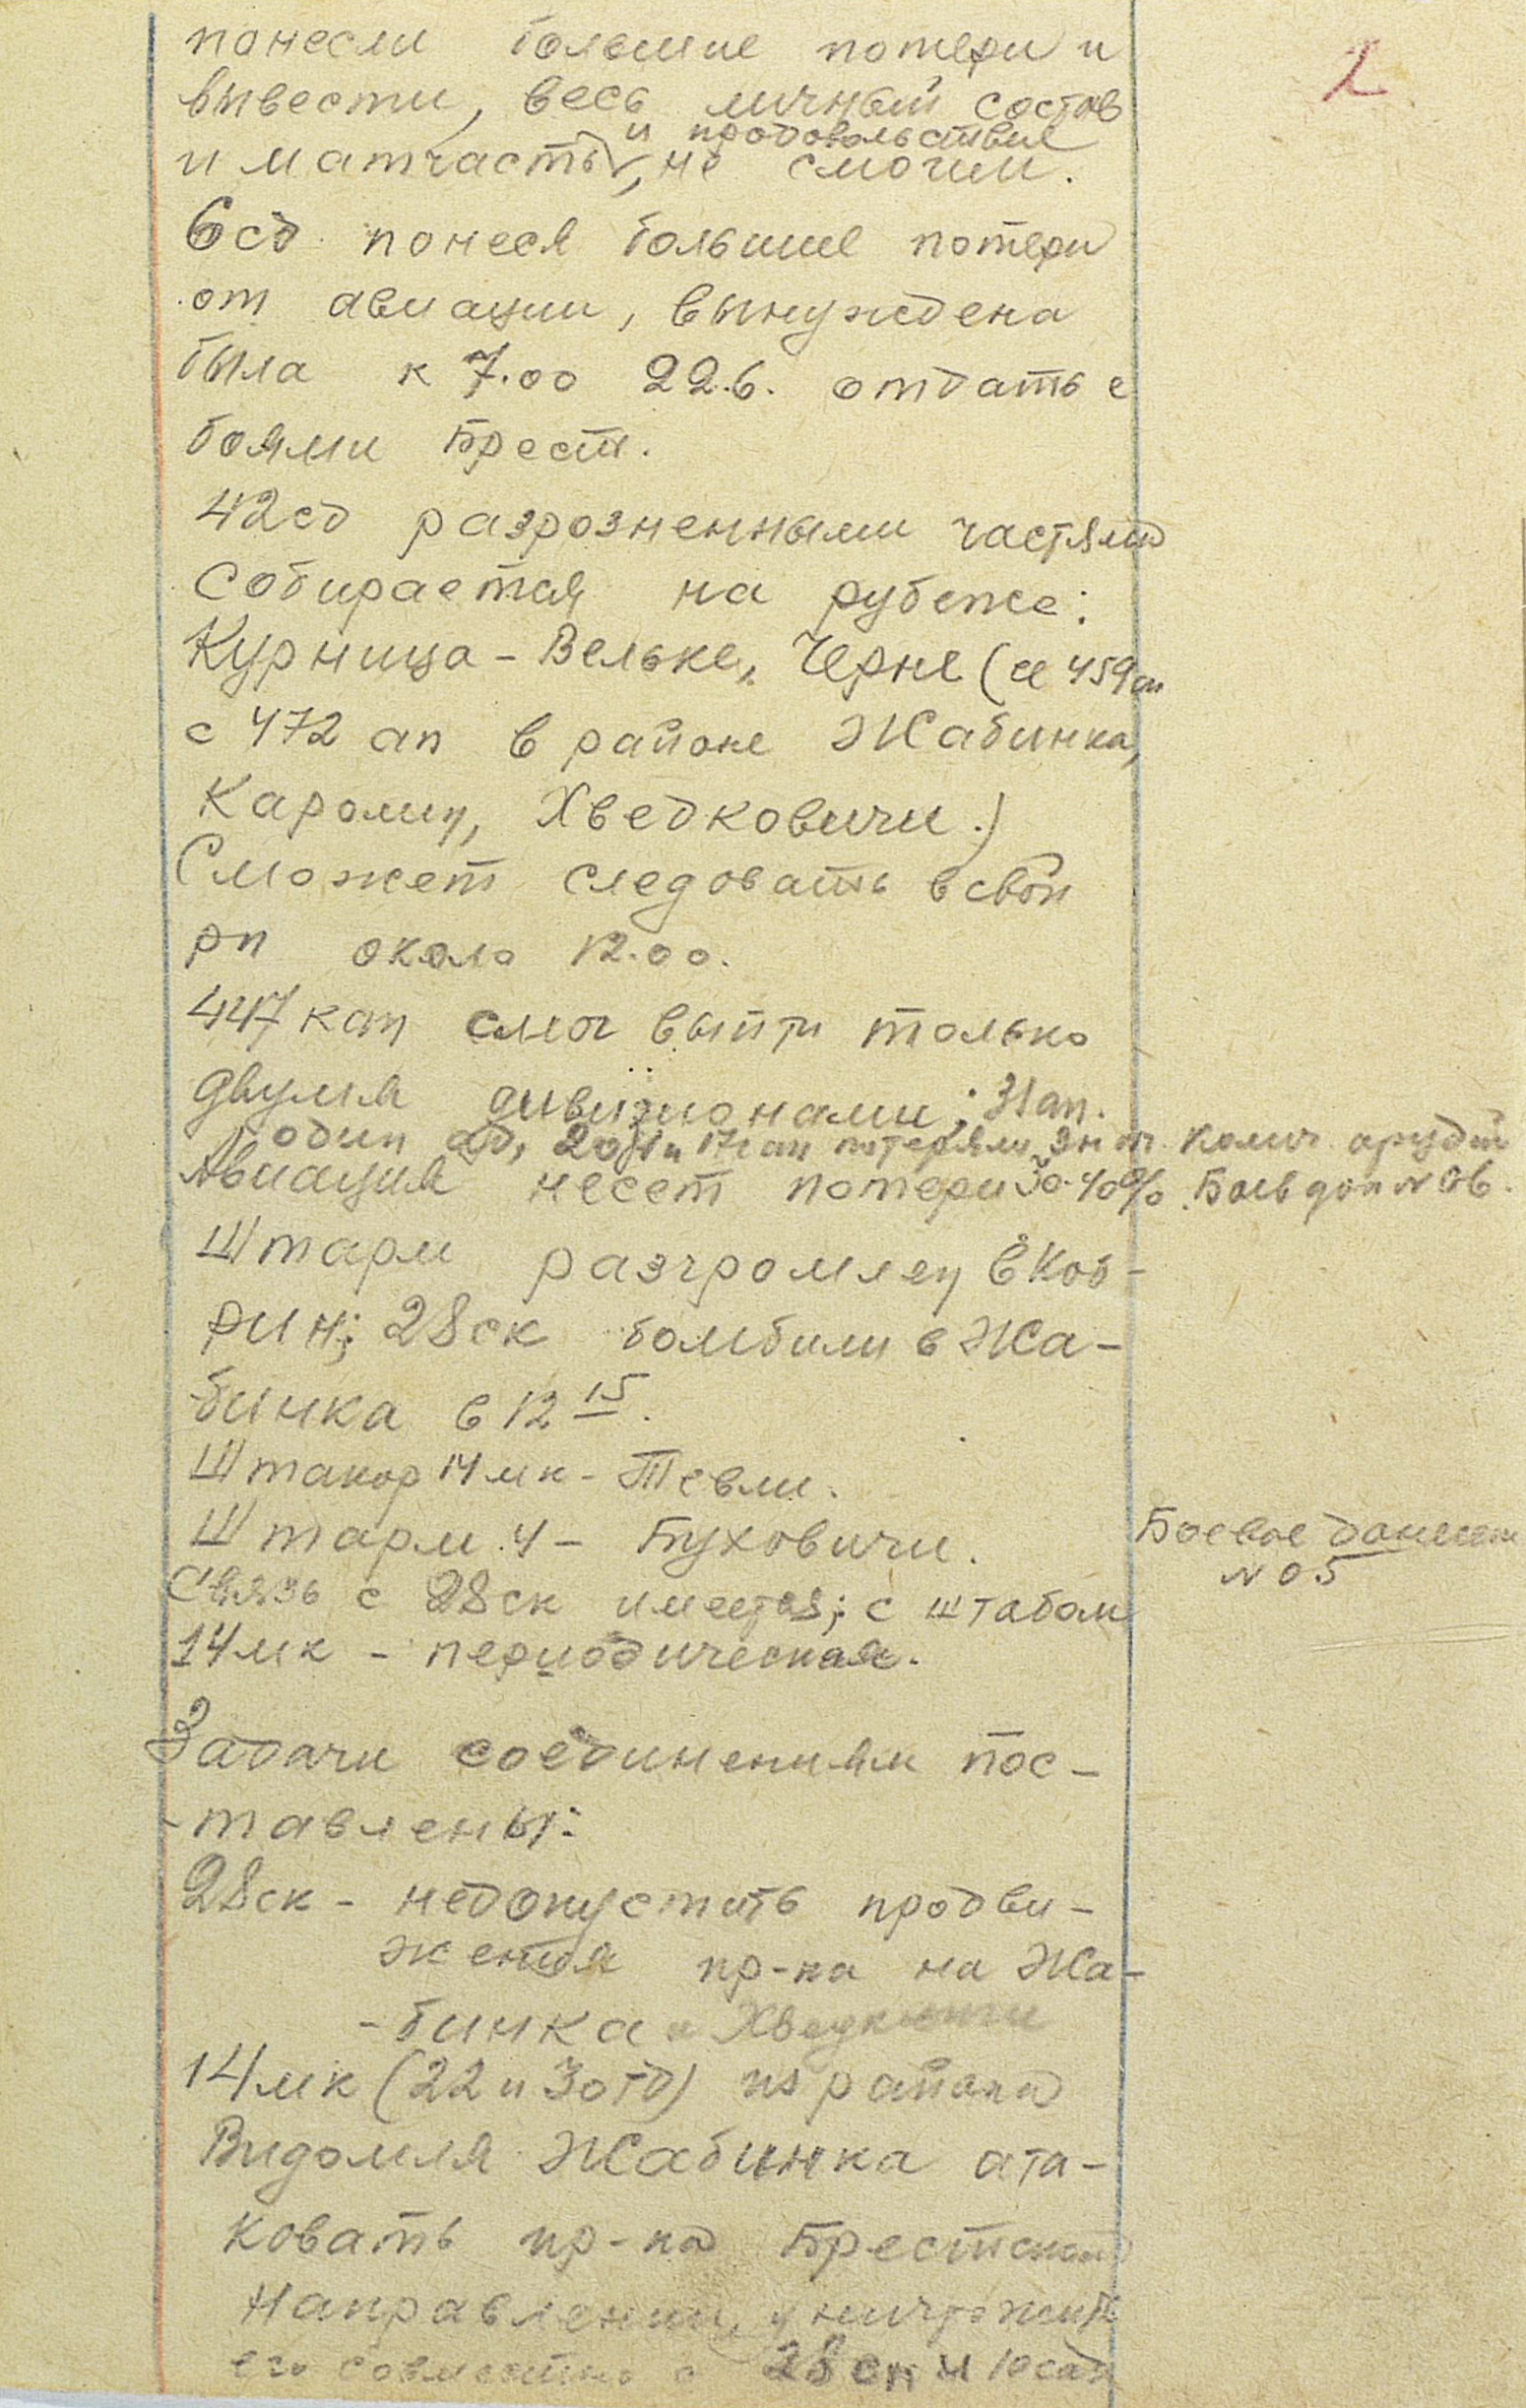 2
понесли большие потери и
вывести, весь личный состав
и продовольствия
и матчасть, не смогли.
6сд понеся большие потери
от авиации, вынуждена
была к 7.00 22.6. отдать с
боями Брест.
42сд разрозненными частями
собирается на рубеже:
Курница-Вельке, Черне (ее 459сп
с 472 ап в районе Жабинка,
Каролин, Хведковичи.)
Сможет следовать в свой
рп около 12.00.
447 кап смог выйти только
двумя дивизионами; 31ап.
один ад, 204 и 17гап потеряли колич орудий
Авиация несет потери 30-40%. Боев дон N 06.
Штарм разгромлен в Коб-
рин; 28ск бомбили в Жа-
бинка в 12 15.
Штакор 14мк - Тевли.
Штарм 4 - Буховичи.
Боевое донесен
N 05
Связь с 28ск имеется; с штабом
14мк - периодическая.
Задачи соединениям пос-
-тавлены:
28ск - недопустить продви-
жения пр-ка на Жа-
-бинка и Хведковичи
14мк (22 и 30тд) из района
Видомля Жабинка ата-
ковать пр-ка Брестском
направлении, уничтожить
его совместно с 28ск и 10сад